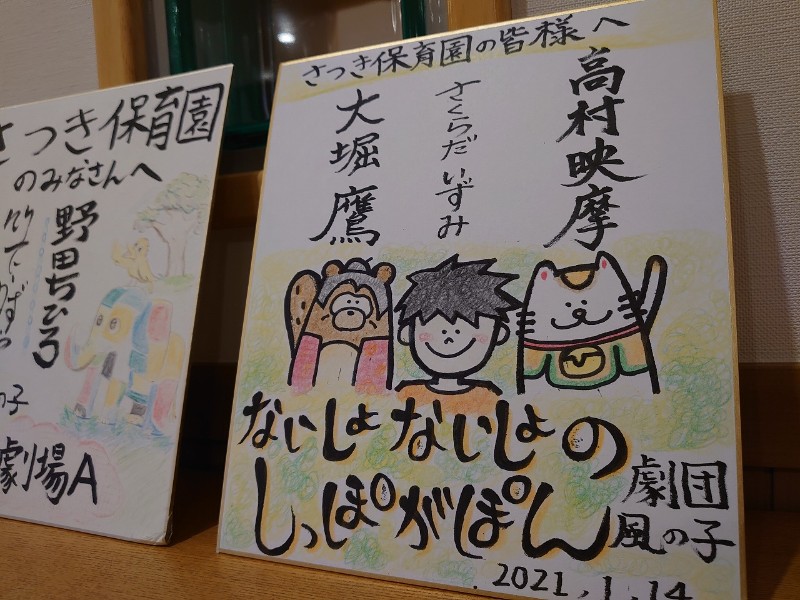 さつき保育園
のみなさんへ
野田ちひろ
の子
劇場A
さつき保育園の皆様へ
高村映摩
さくらだいずみ
大堀鷹
ないしょないしょの
しっぽがぽん
劇団
風の子
2021.1.14